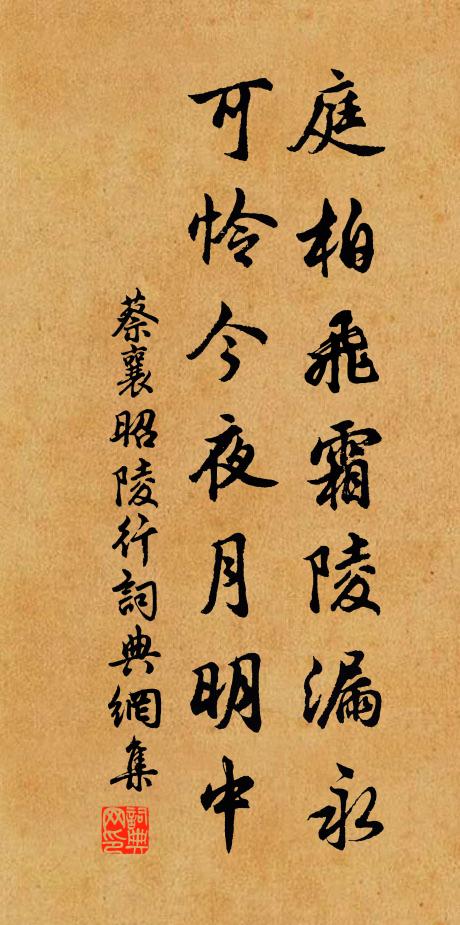 庭柏飛霜陵漏永
可怜今夜月明中
蔡襄昭陵行詞典網集
詞典网印